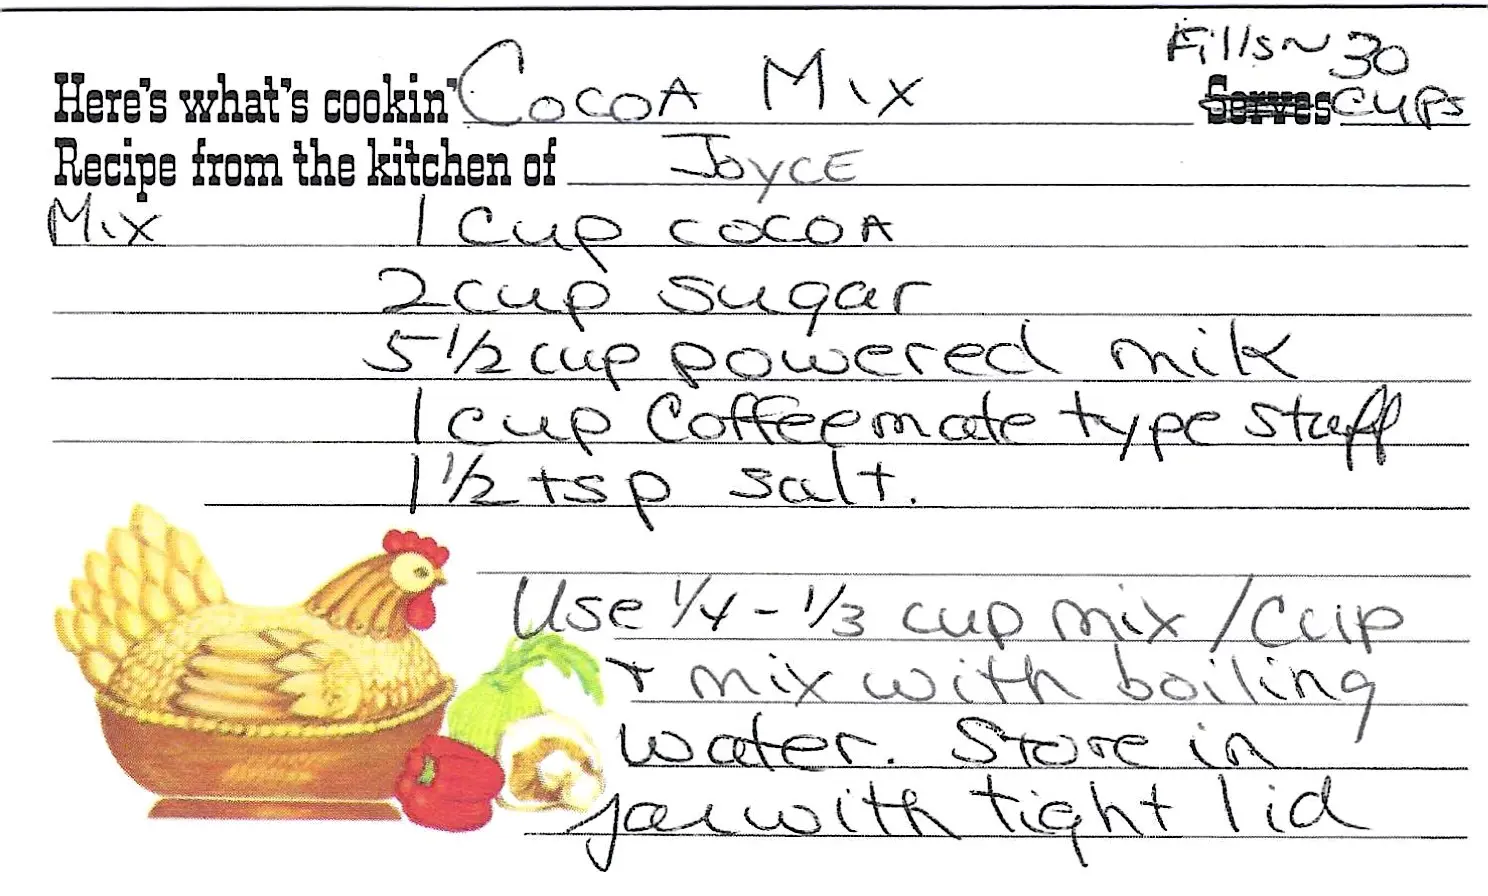 Fills ~ 30
Here's what's cookin' Cocoa Mix Serves cups
Recipe from the kitchen of Joyce
Mix 1 cup cocoa
2 cup sugar
5 1/2 cup powered milk
1 cup Coffeemate type stuff
1 1/2 tsp salt.
Use 1/4 - 1/3 cup mix / cup
+ mix with boiling
water. Store in
jar with tight lid